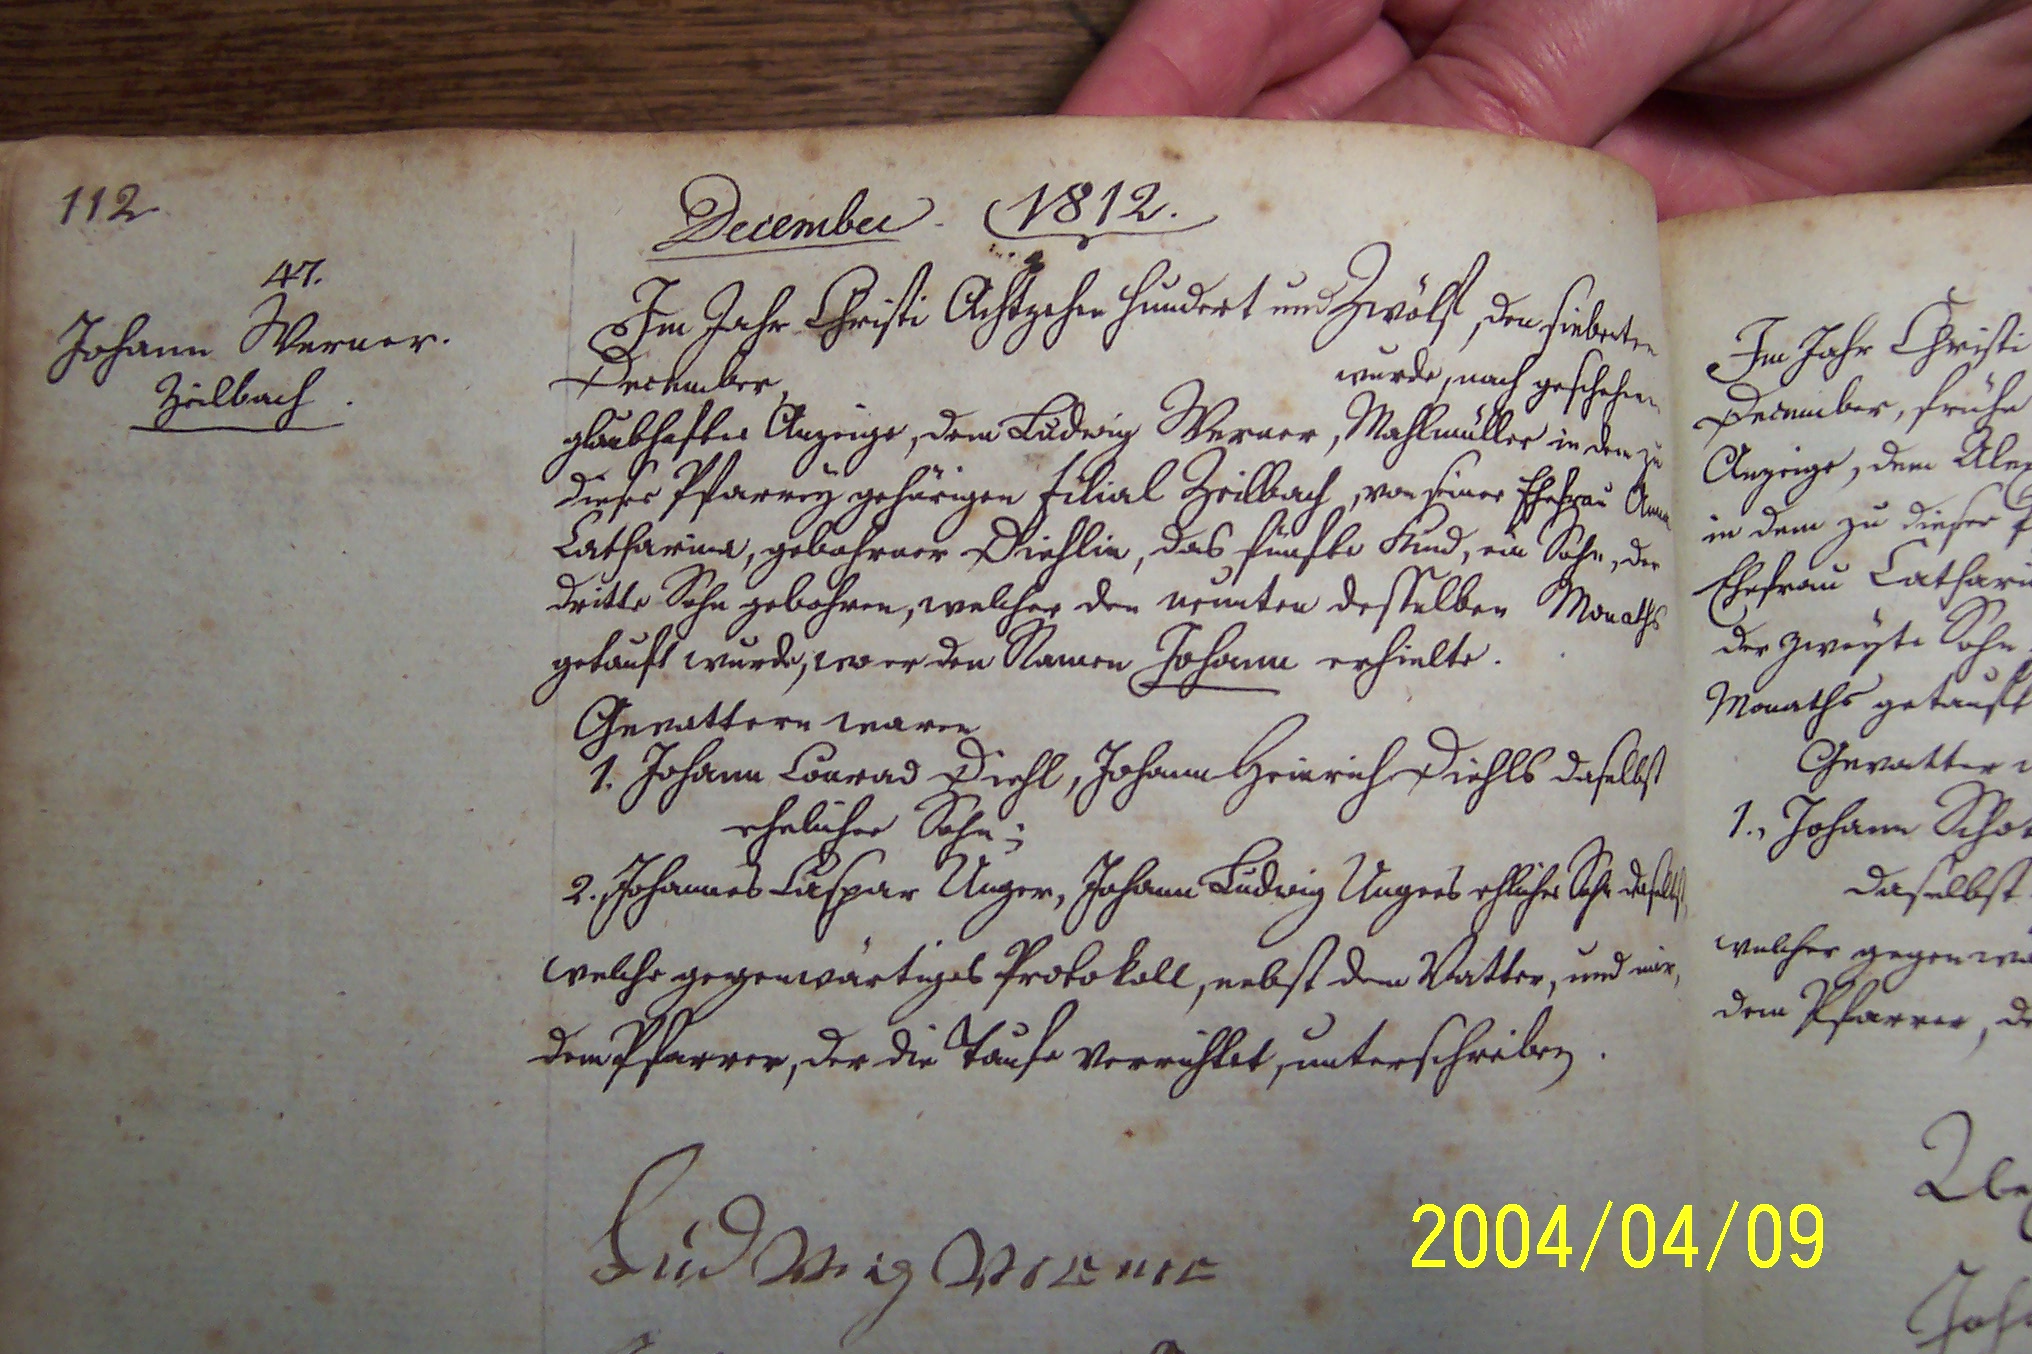 112
December. 1812.
47.
Johann Werner.
Zeilbach.
Im Jahr Christi Achtzehen hundert und Zwölf, den siebenten
December, wurde, nach geschehener
glaubhafter Anzeige, dem Ludwig Werner, Mahlmüller in dem zu
dieser Pfarrey gehörigen Filial Zeilbach, von seiner Ehefrau Anna
Catharina, gebohrner Diehlin, das fünfte Kind, ein Sohn, der
dritte Sohn gebohren, welcher den neunten desselben Monaths
getauft wurde, wo er den Namen Johann erhielte.
Gevattern waren
1. Johann Conrad Diehl, Johann Heinrich Diehls daselbst
ehelicher Sohn;
2. Johannes Caspar Unger, Johann Ludwig Ungers ehlicher Sohn daselbst,
welche gegenwärtiges Protokoll, nebst dem Vatter, und mir,
dem Pfarrer, der die Taufe verrichtet, unterschreiben.
Ludwig Werner
Im Jahr Christi
December, frühe
Anzeige, dem
in dem zu dieser
Ehefrau
der zweyte Sohn
Monaths getauft
Gevatter
1., Johann
daselbst
welcher
dem Pfarrer,
2004/04/09